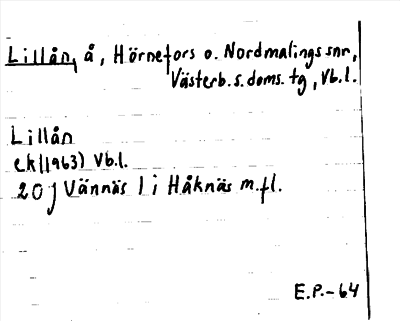 Lillån, å, Hörnefors o. Nordmalings snr,
Västerb. s. doms. tg, Vb.l.
Lillån
ek (1963) Vb.l.
20 J Vännäs l i Håknäs m.fl.
E.P.-64